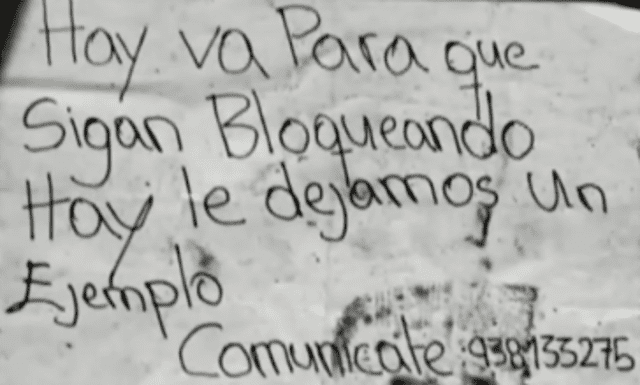 Hay va Para que
Sigan Bloqueando
Hay le dejamos un
Ejemplo
Comunicate: 938133275